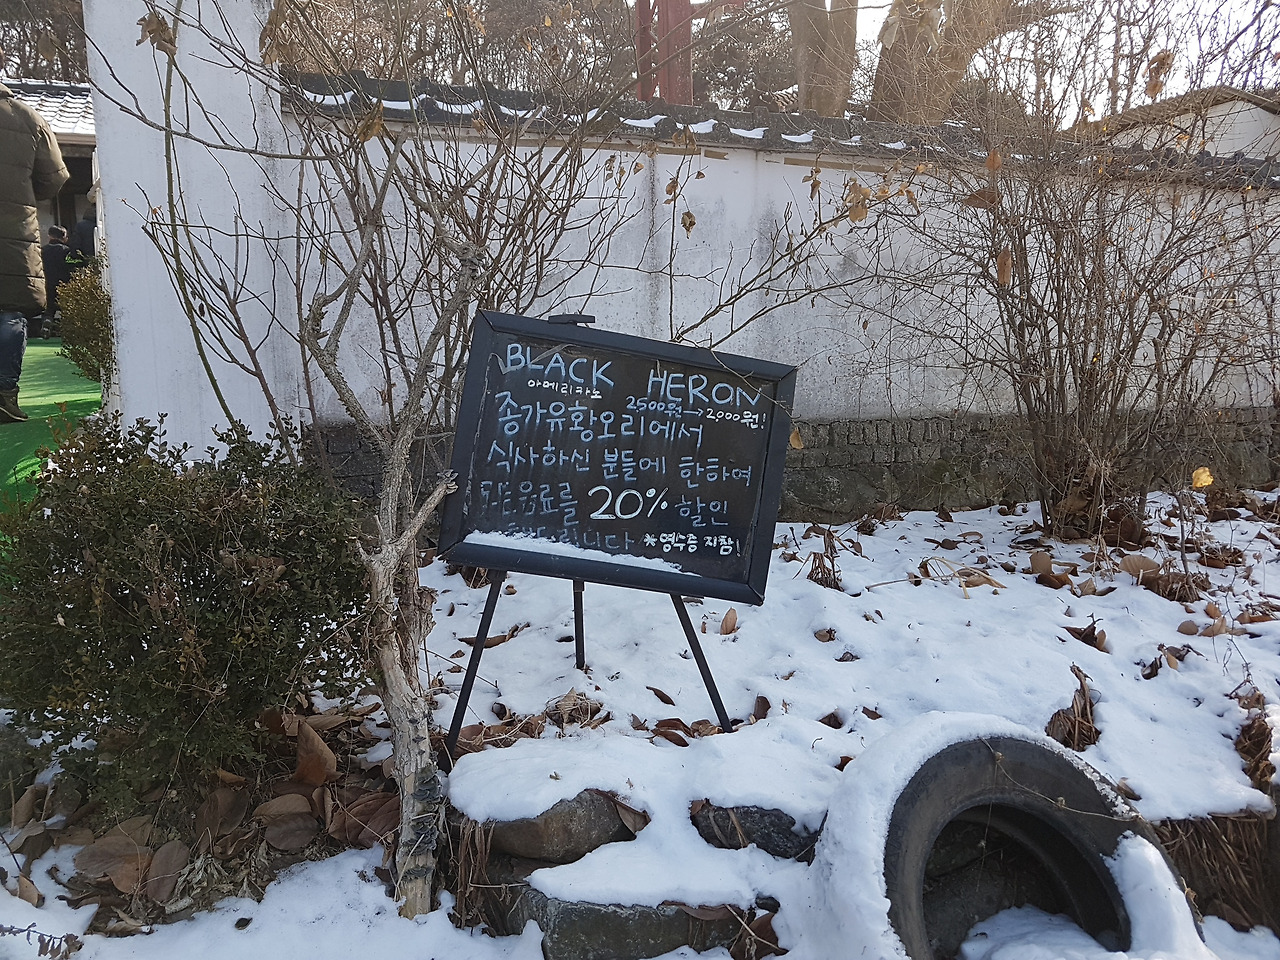 BLACK HERON
아메리카노 2500원→2000원!
종가유황오리에서
식사하신 분들에 한하여
음료를 20% 할인
니다 *영수증 지참!